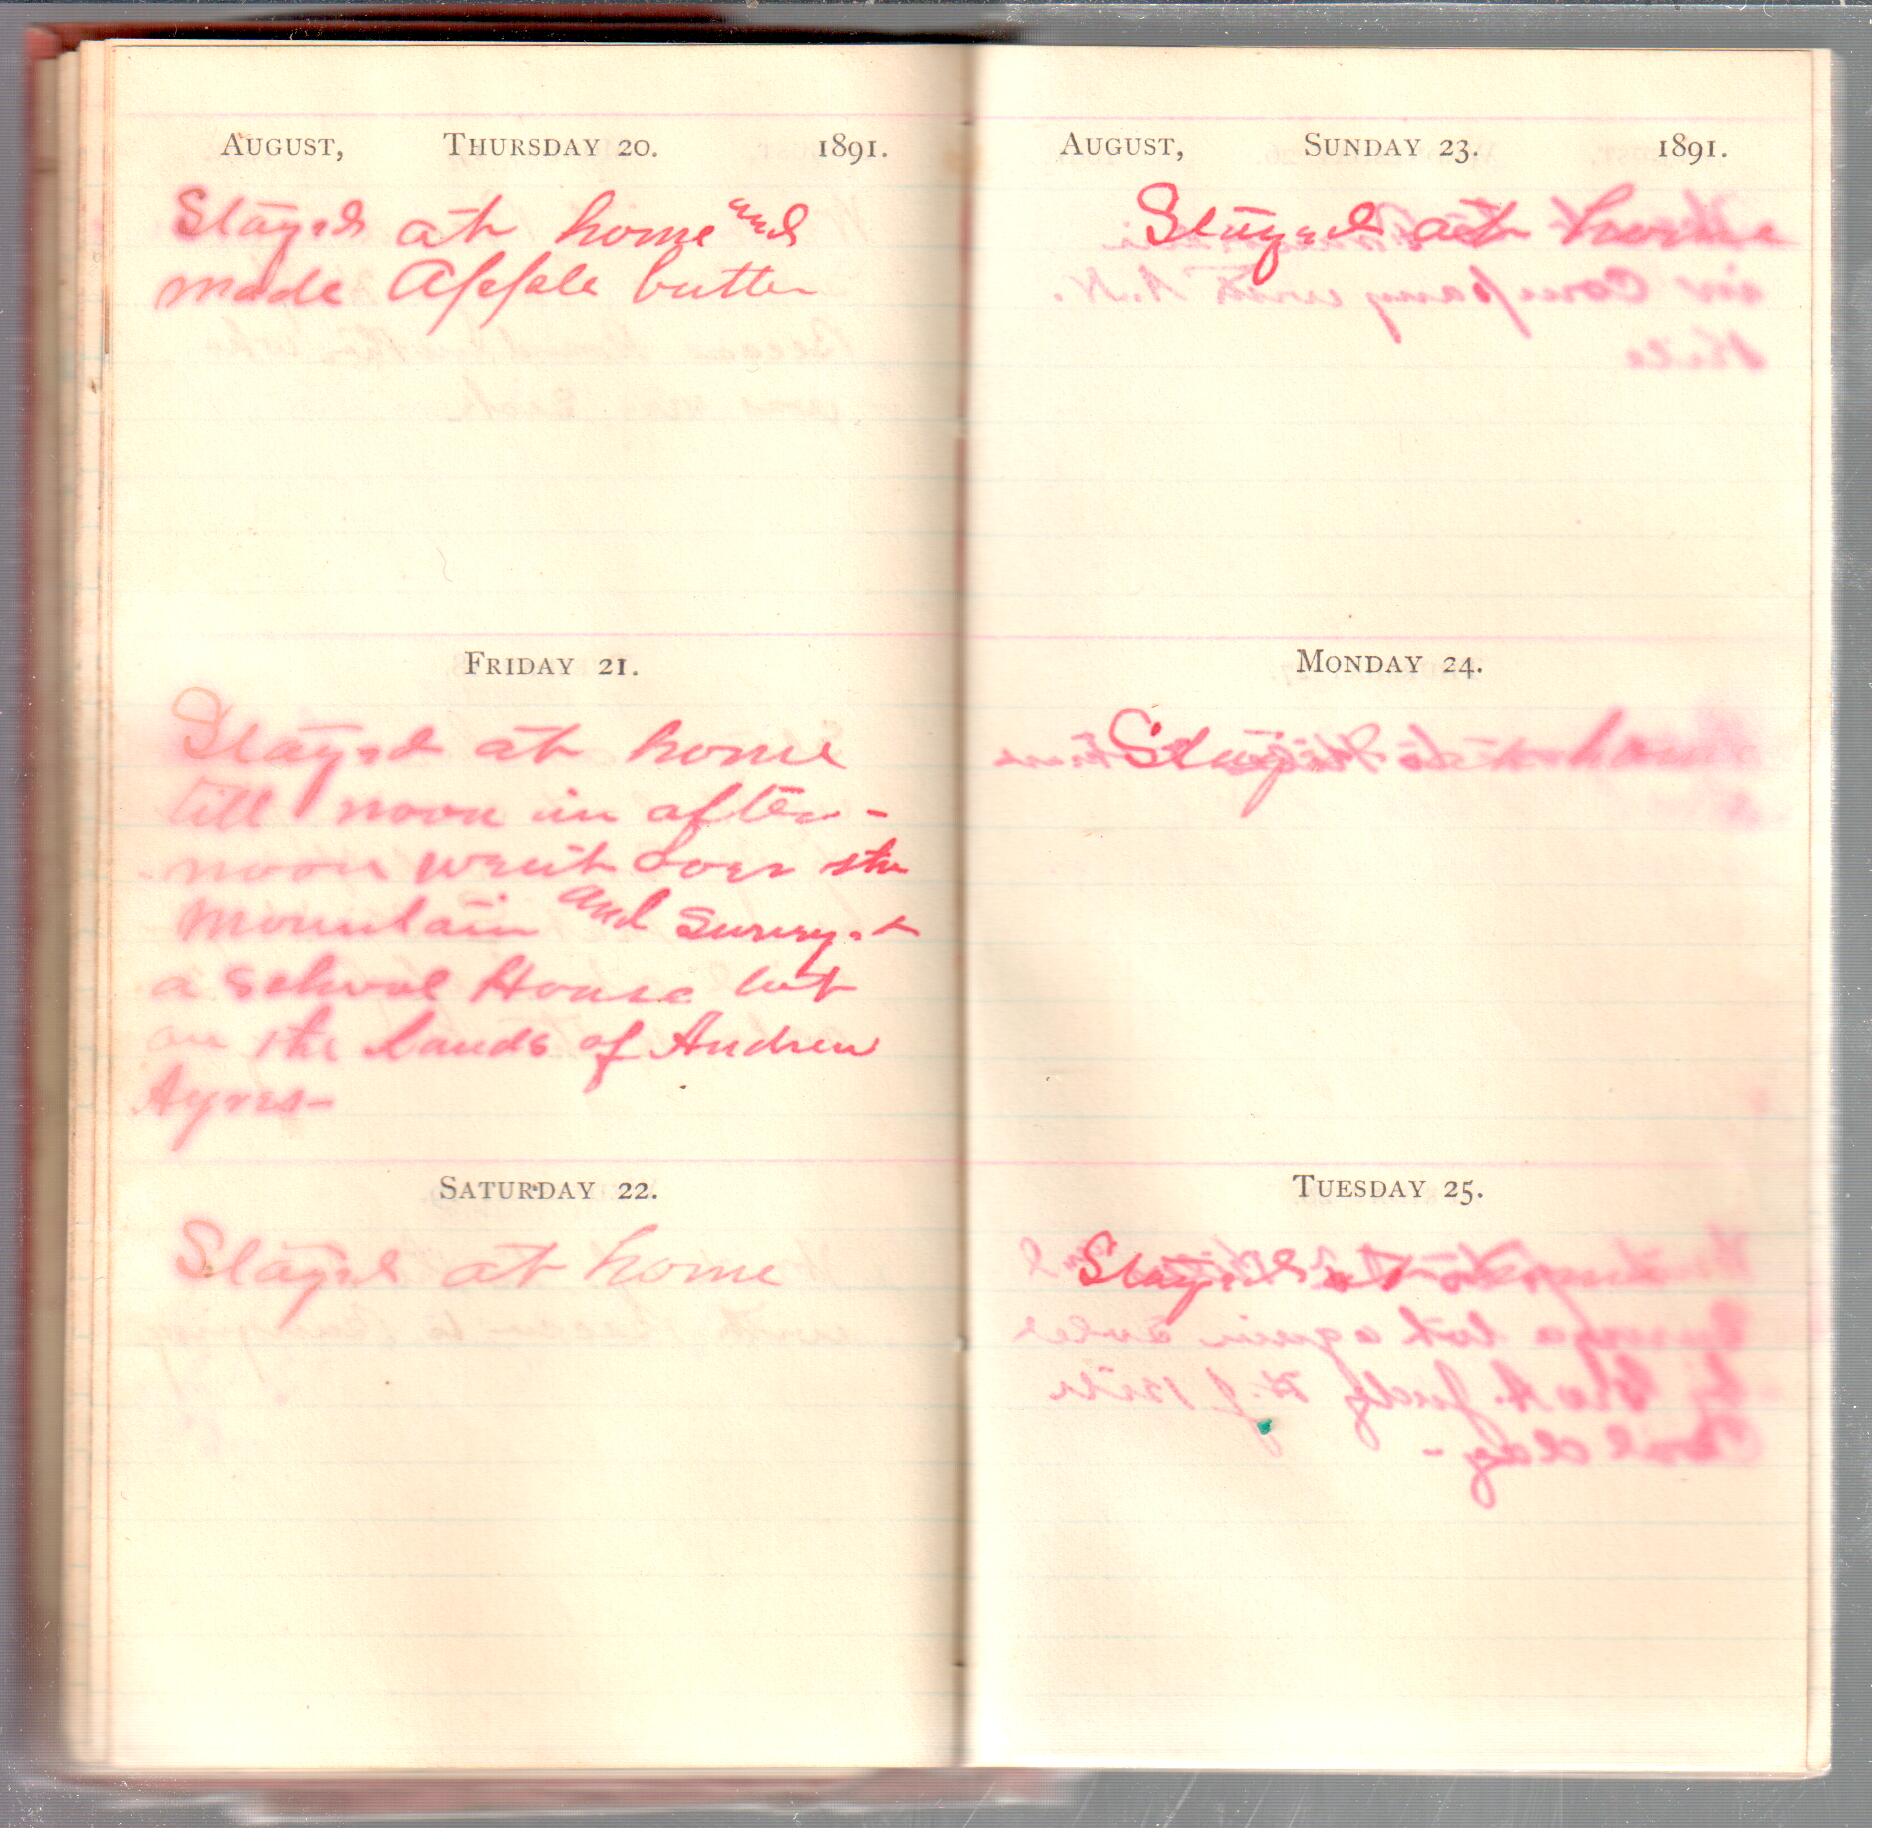 AUGUST, THURSDAY 20. 1891.
Stayed at home and
made Apple butter
FRIDAY 21.
Stayed at home
till noon in after-
noon went over the
mountain and Survey.d
a School House lot
on the lands of Andrew
Ayres-
SATURDAY 22.
Stayed at home
AUGUST, SUNDAY 23. 1891.
Stayed at home
MONDAY 24.
Stayed at home
TUESDAY 25.
Stayed at home